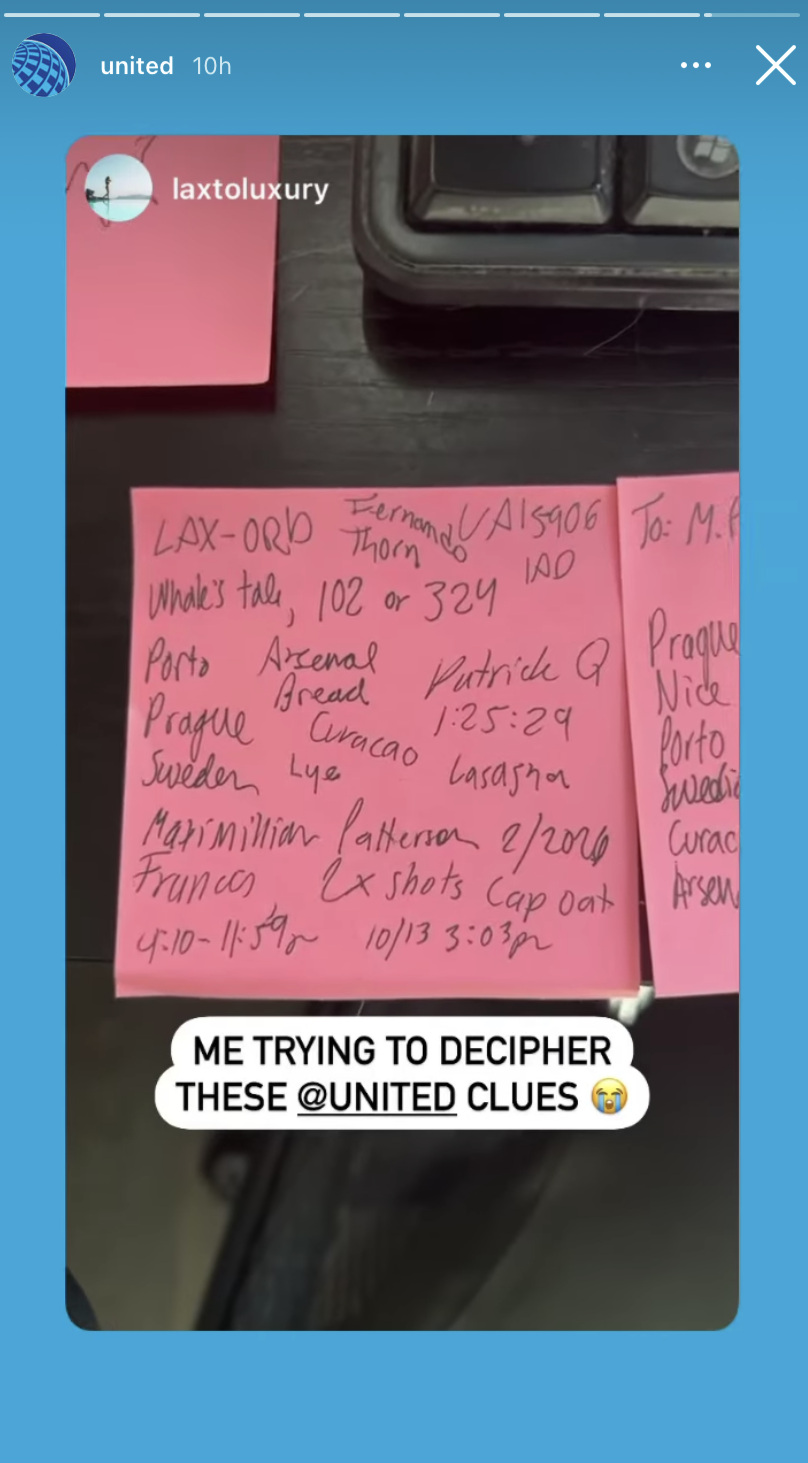 united 10h
laxtoluxury
LAX-ORD Fernando Thorn UA15906
IAD
Whale's tale, 102 or 324
Porto Arsenal Patrick Q
Bread
Prague Curacao 1:25:29
Sweden Lye Lasagna
Maximillian Patterson 2/2026
Francis 2x shots Cap oat
4:10-11:59p 10/13 3:03pm
To: M.
Prague
Nice
Porto
Swedi
Curac
Arsen
ME TRYING TO DECIPHER
THESE @UNITED CLUES 😭